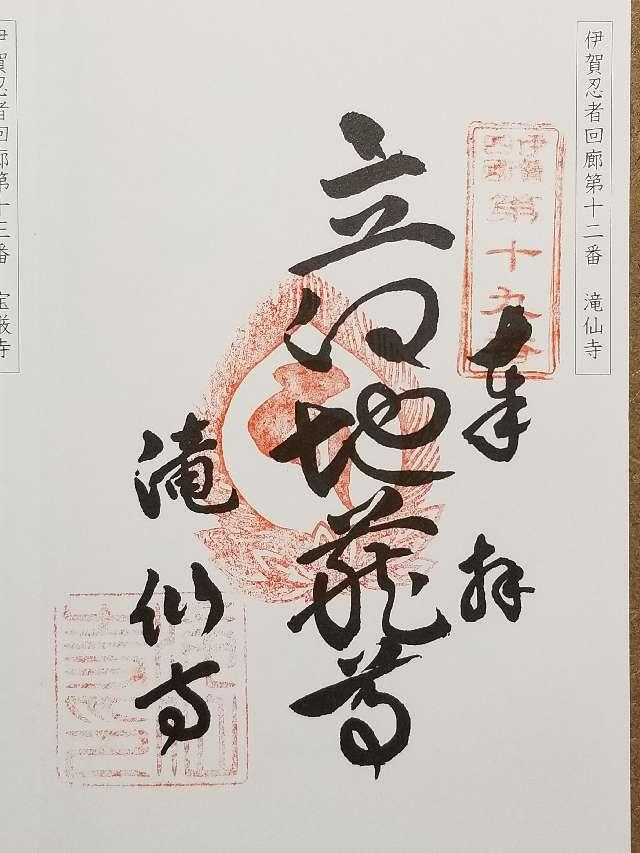 伊賀忍者回廊第十二番　滝仙寺
伊賀四国
第十九番
奉拝
立江地蔵尊
滝仙寺
伊賀忍者回廊第十三番　宝厳寺